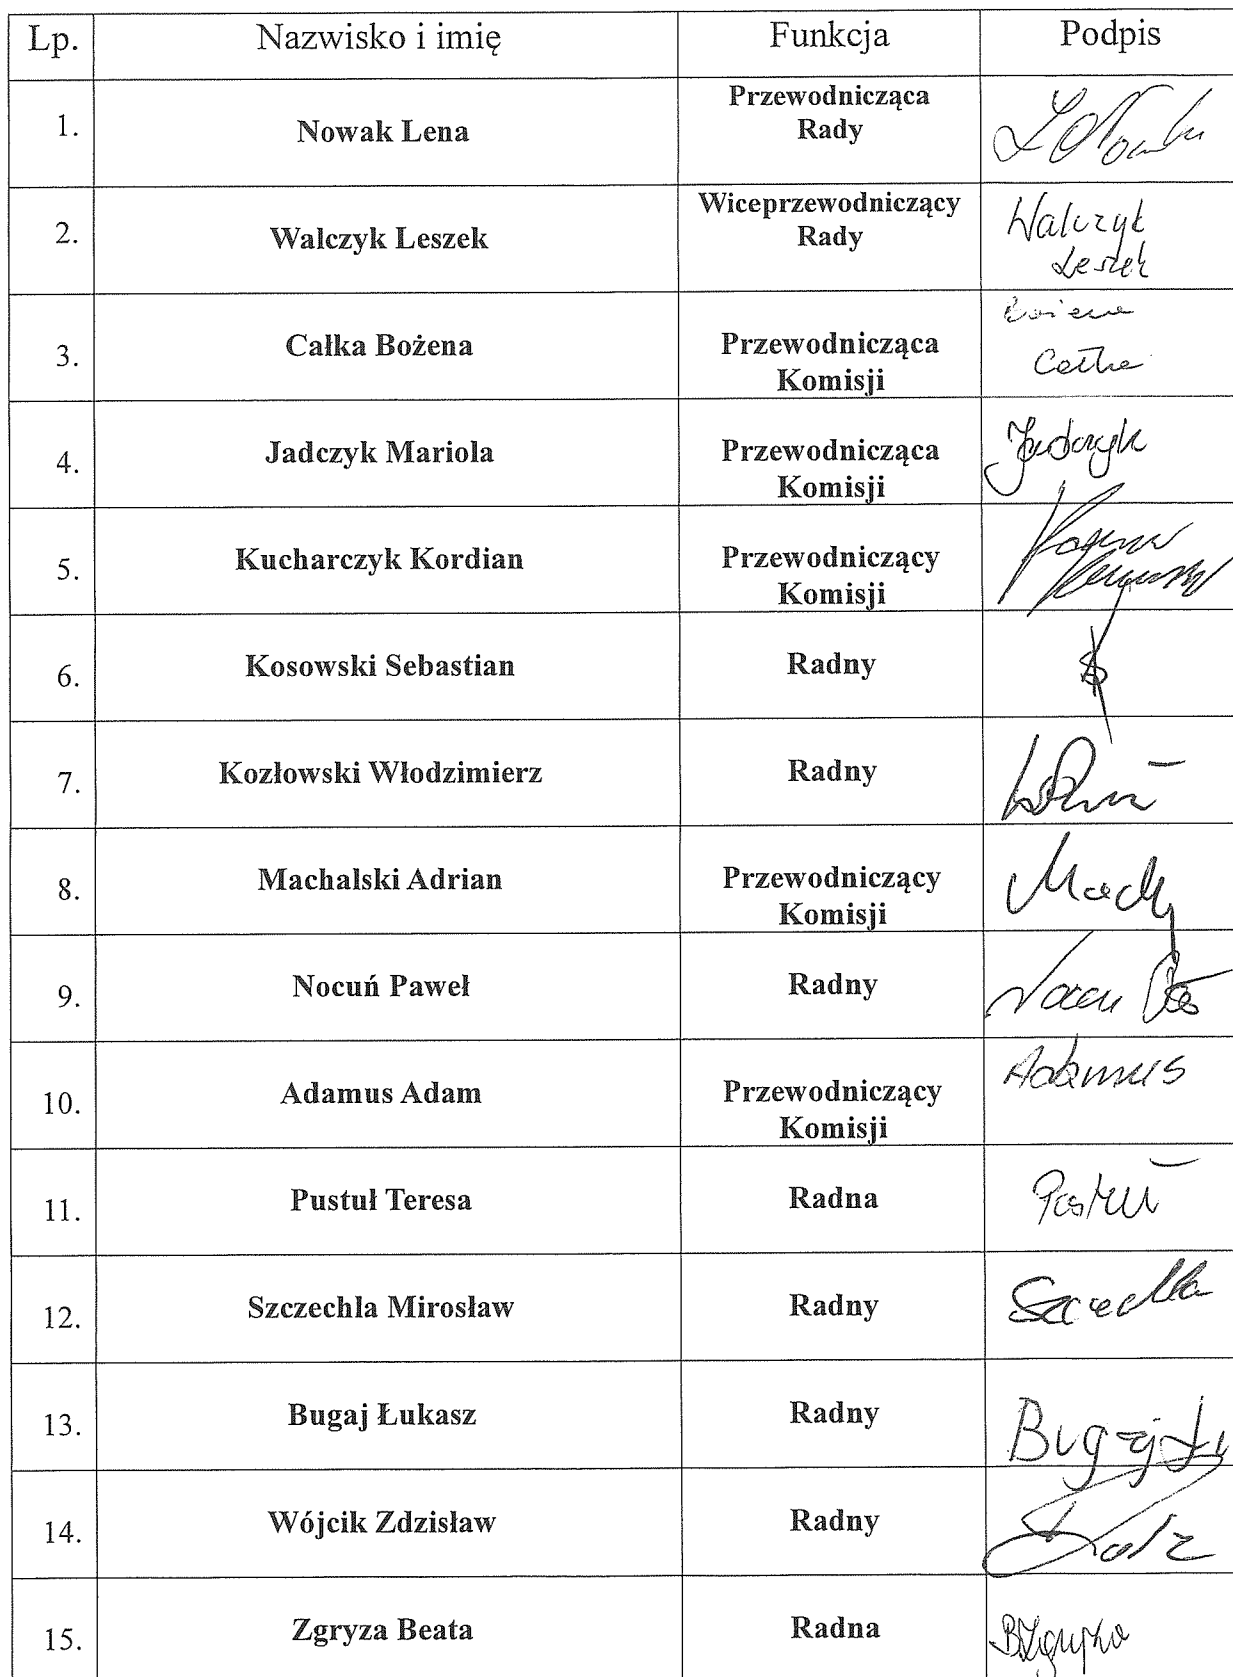 Lp. Nazwisko i imię Funkcja Podpis
1. Nowak Lena Przewodnicząca
Rady
2. Walczyk Leszek Wiceprzewodniczący
Rady
Walczyk
Leszek
3. Całka Bożena Przewodnicząca
Komisji
Bożena
Całka
4. Jadczyk Mariola Przewodnicząca
Komisji
Jadczyk
5. Kucharczyk Kordian Przewodniczący
Komisji
6. Kosowski Sebastian Radny
7. Kozłowski Włodzimierz Radny
8. Machalski Adrian Przewodniczący
Komisji
Mach
9. Nocuń Paweł Radny
10. Adamus Adam Przewodniczący
Komisji
Adamus
11. Pustuł Teresa Radna
12. Szczechla Mirosław Radny
13. Bugaj Łukasz Radny Bugaj
14. Wójcik Zdzisław Radny
15. Zgryza Beata Radna